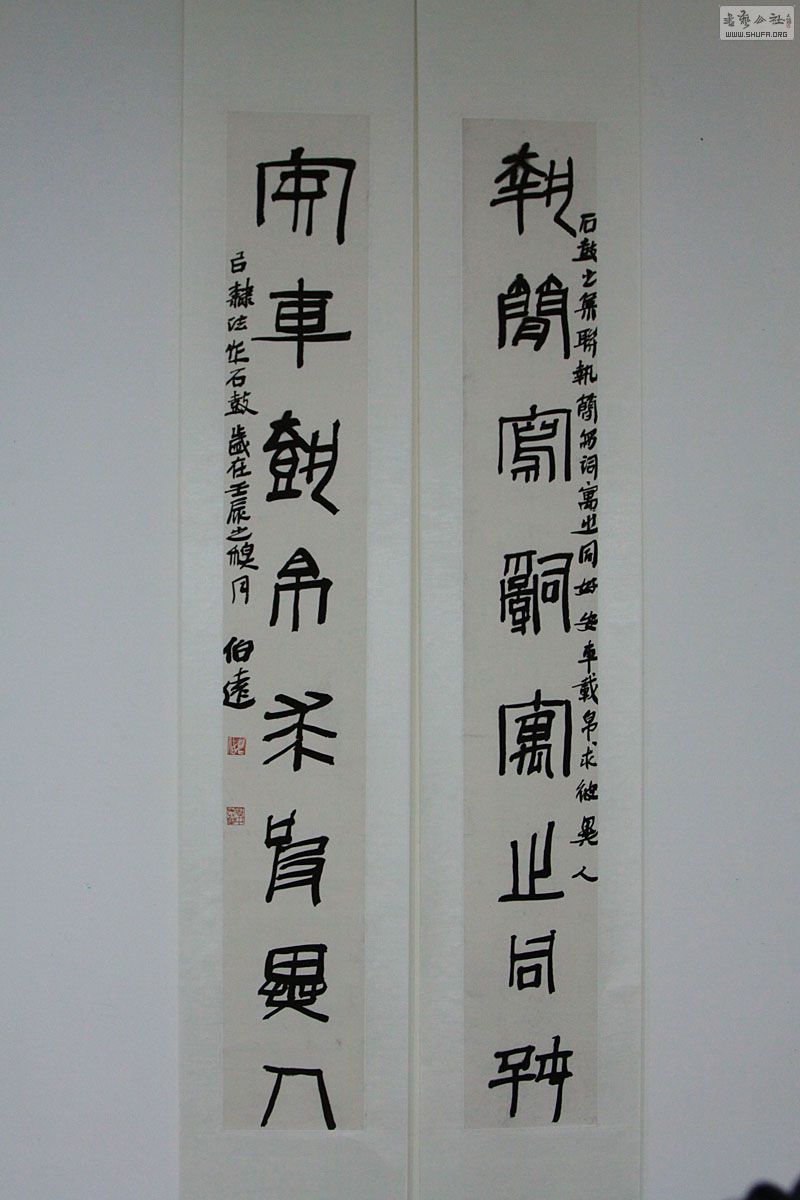 書藝公社
WWW.SHUFA.ORG
執簡寫辭寓之同好
石鼓文集聯執簡寫詞寓之同好安車載帛求彼異人
安車載帛求彼異人
㠯隸法作石鼓歲在壬辰之月伯遠